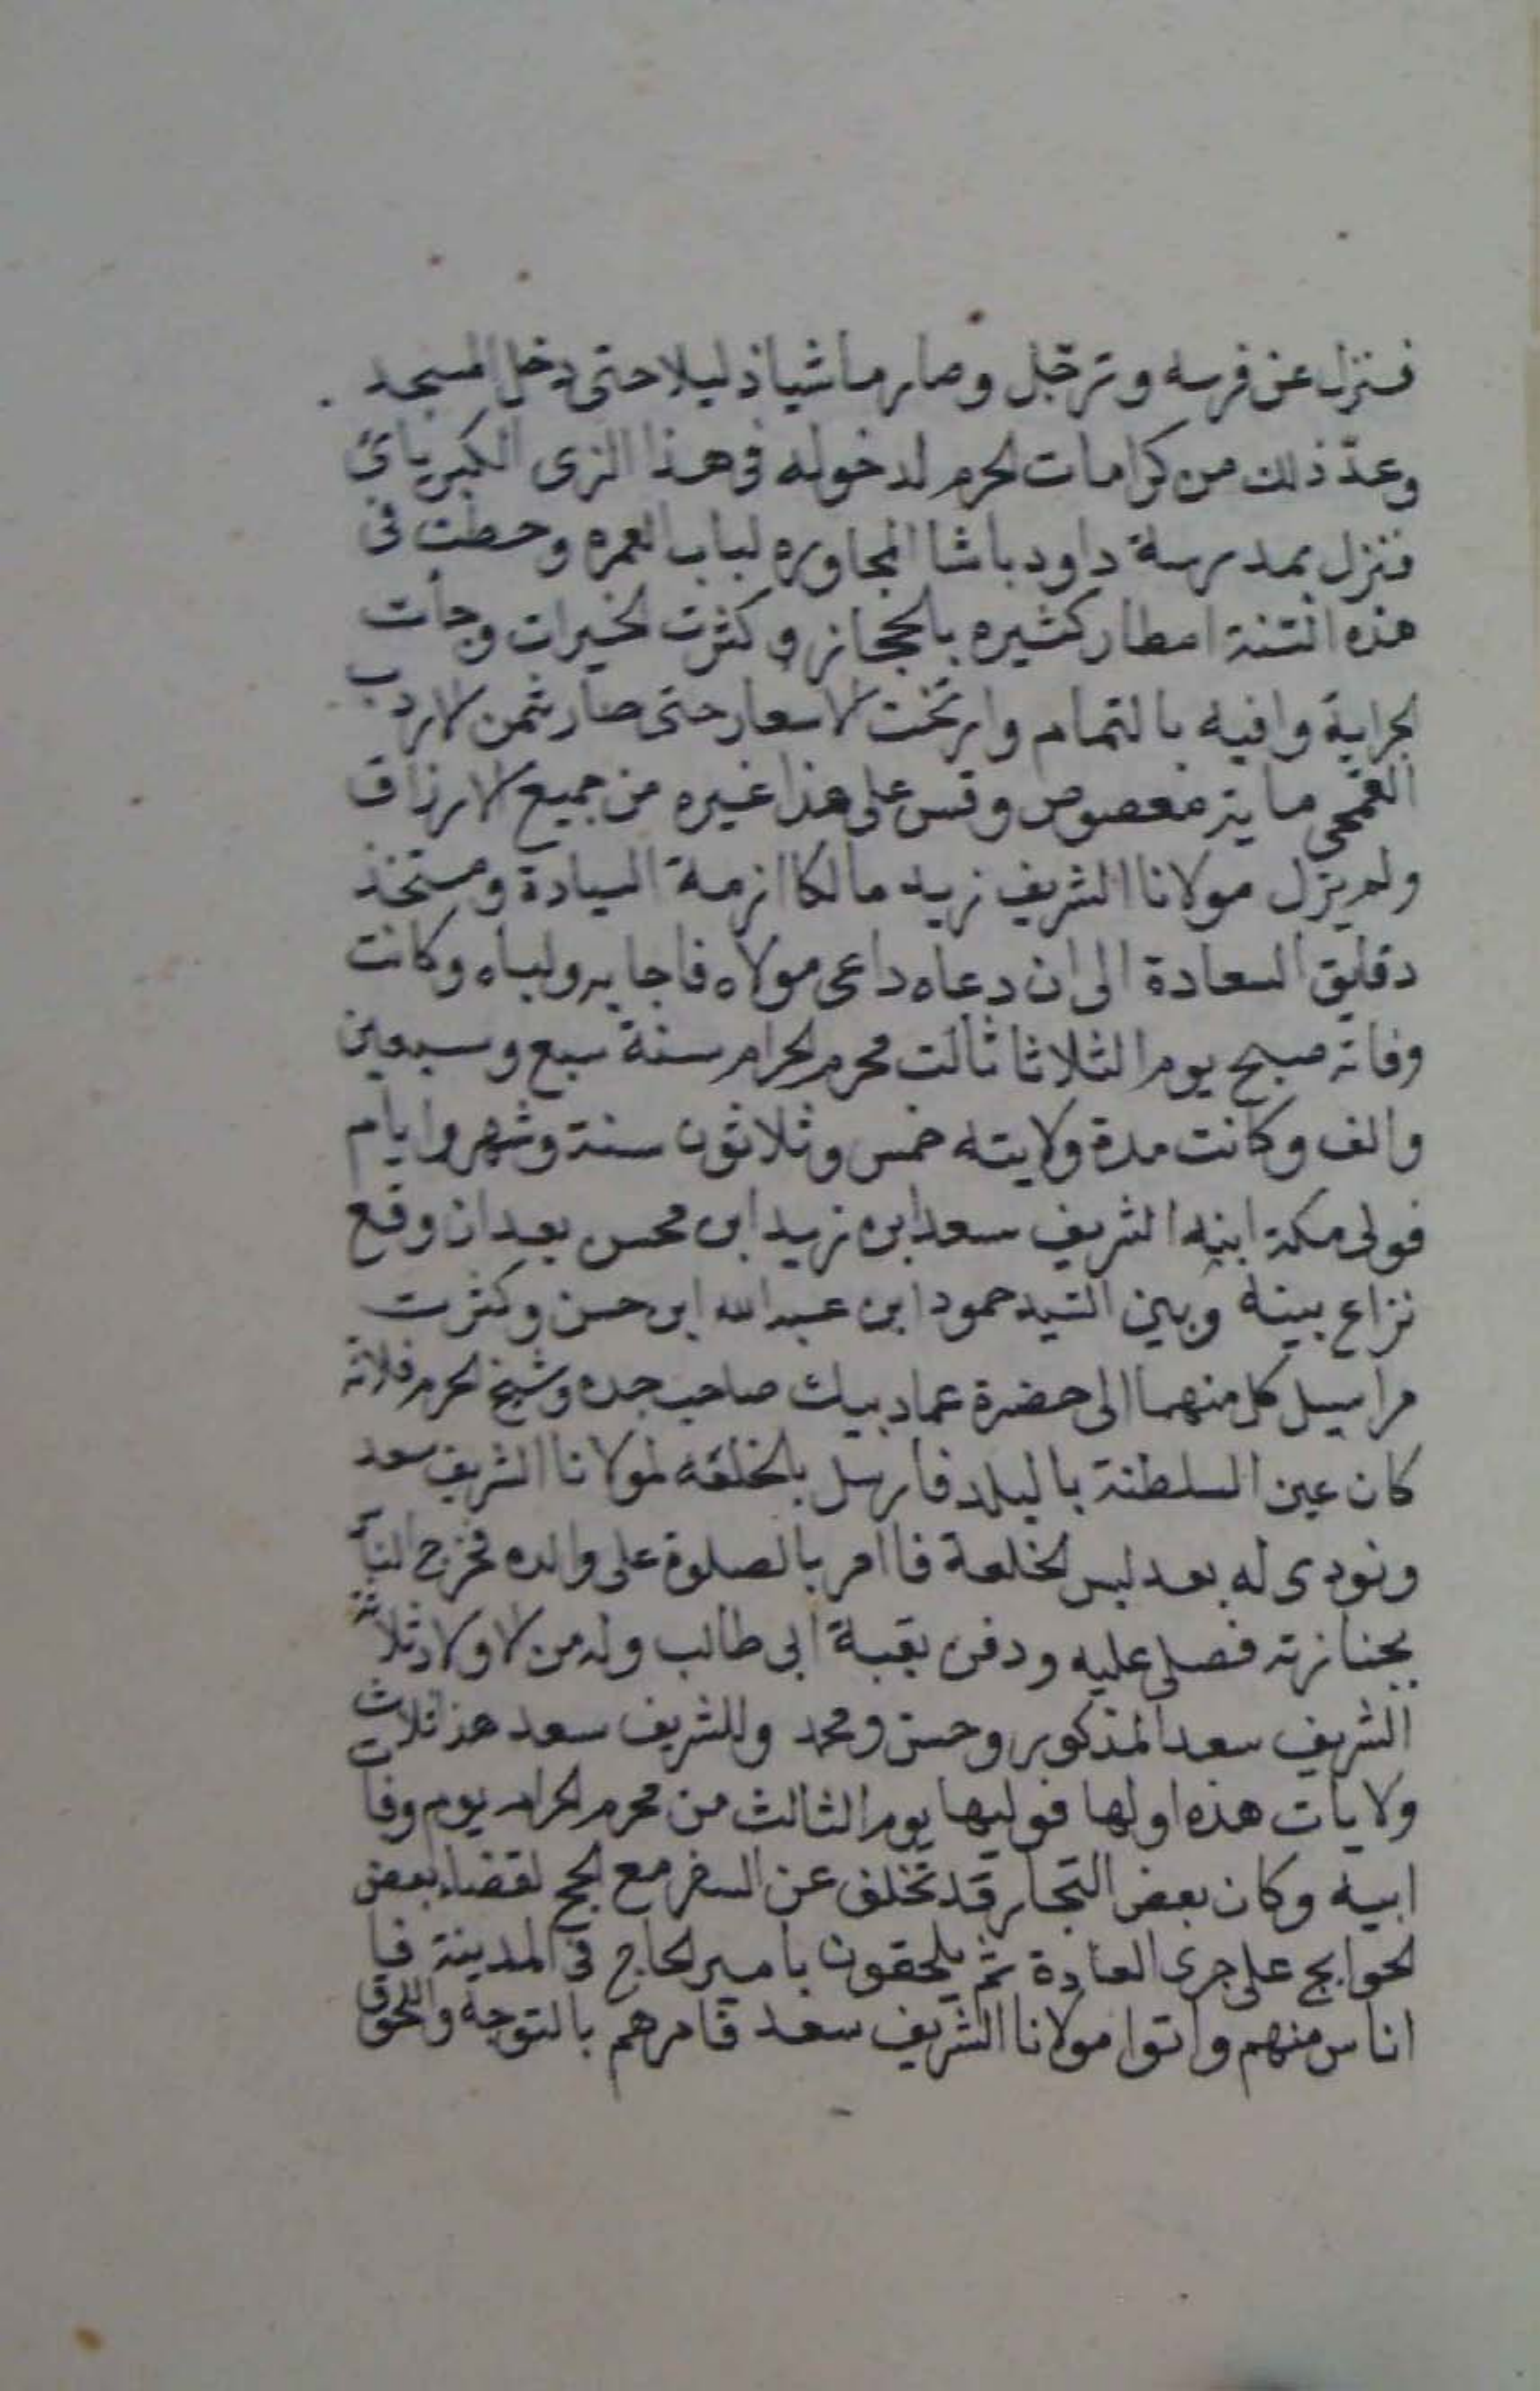 فنزل عن فرسه وترجّل وصار ماشيا ذليلا حتى دخل المسجد
وعدّ ذلك من كرامات الحرم لدخوله فى هذا الزى الكبريائى
فنزل بمدرسة داود باشا المجاوره لباب العمره وحطت فى
هذه السّنة امطار كثيره بالحجاز وكثرت الخيرات وجأت
الجراية وافيه بالتمام وارتخت الاسعار حتى صار ثمن الاردب
القمحى ماية معصوص وقس على هذا غيره من جميع الارزاق
ولم يزل مولانا الشريف زيد مالكا ازمة السيادة ومستخذ
دقايق السعادة الى ان دعاه داعى مولاه فاجابه ولباه وكانت
وفاته صبح يوم الثلاثا ثالت محرم الحرام سنة سبع وسبعين
والف وكانت مدة ولايته خمس وثلاثون سنة وشهر وايام
فولى مكة ابنه الشريف سعد ابن زيد ابن محسن بعد ان وقع
نزاع بينه وبين السّيد حمود ابن عبد الله ابن حسن وكثرت
مراسيل كل منهما الى حضرة عماد بيك صاحب جده وشيخ الحرم فلانه
كان عين السلطنة بالبلد فارسل بالخلعه لمولانا الشريف سعد
ونودى له بعد لبس الخلعة فاامر بالصلوة على والده فخرج النا
بجنازته فصلى عليه ودفن بقبة ابى طالب وله من الاولاد ثلاثة
الشريف سعد المذكور وحسن ومحمد وللشريف سعد هذ ثلاث
ولايات هذه اولها فوليها يوم الثالث من محرم الحرام يوم وفات
ابيه وكان بعض التجار قد تخلف عن السفر مع الحج لقضاء بعض
الحوايج على جرى العادة ثم يلحقون بامير الحاج فى المدينة فا
اناس منهم واتوا مولانا الشريف سعد فامرهم بالتوجه واللحوق